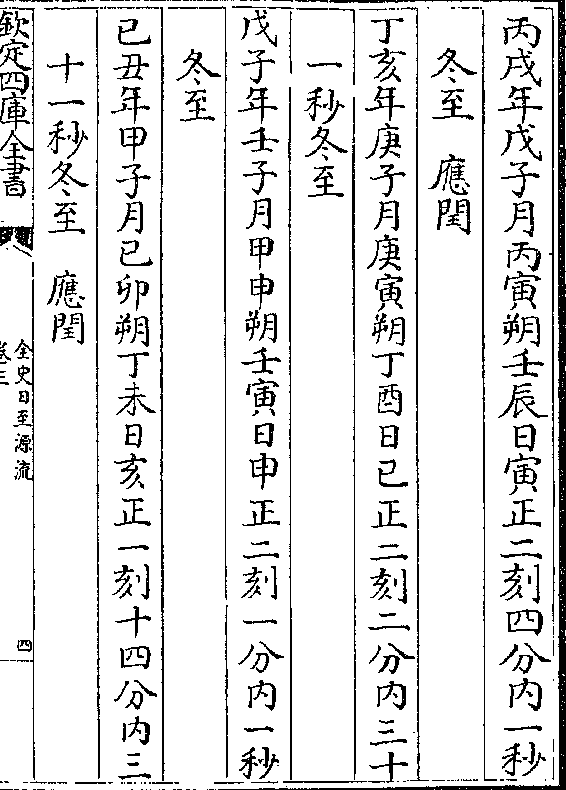 丙戌年戊子月丙寅朔壬辰日寅正二刻四分内一秒
冬至　應閏
丁亥年庚子月庚寅朔丁酉日巳正二刻二分内三十
一秒冬至
戊子年壬子月甲申朔壬寅日申正二刻一分内一秒
冬至
已丑年甲子月已卯朔丁未日亥正一刻十四分内三
十一秒冬至　應閏
欽定四庫全書
全史日至源流
卷三
四